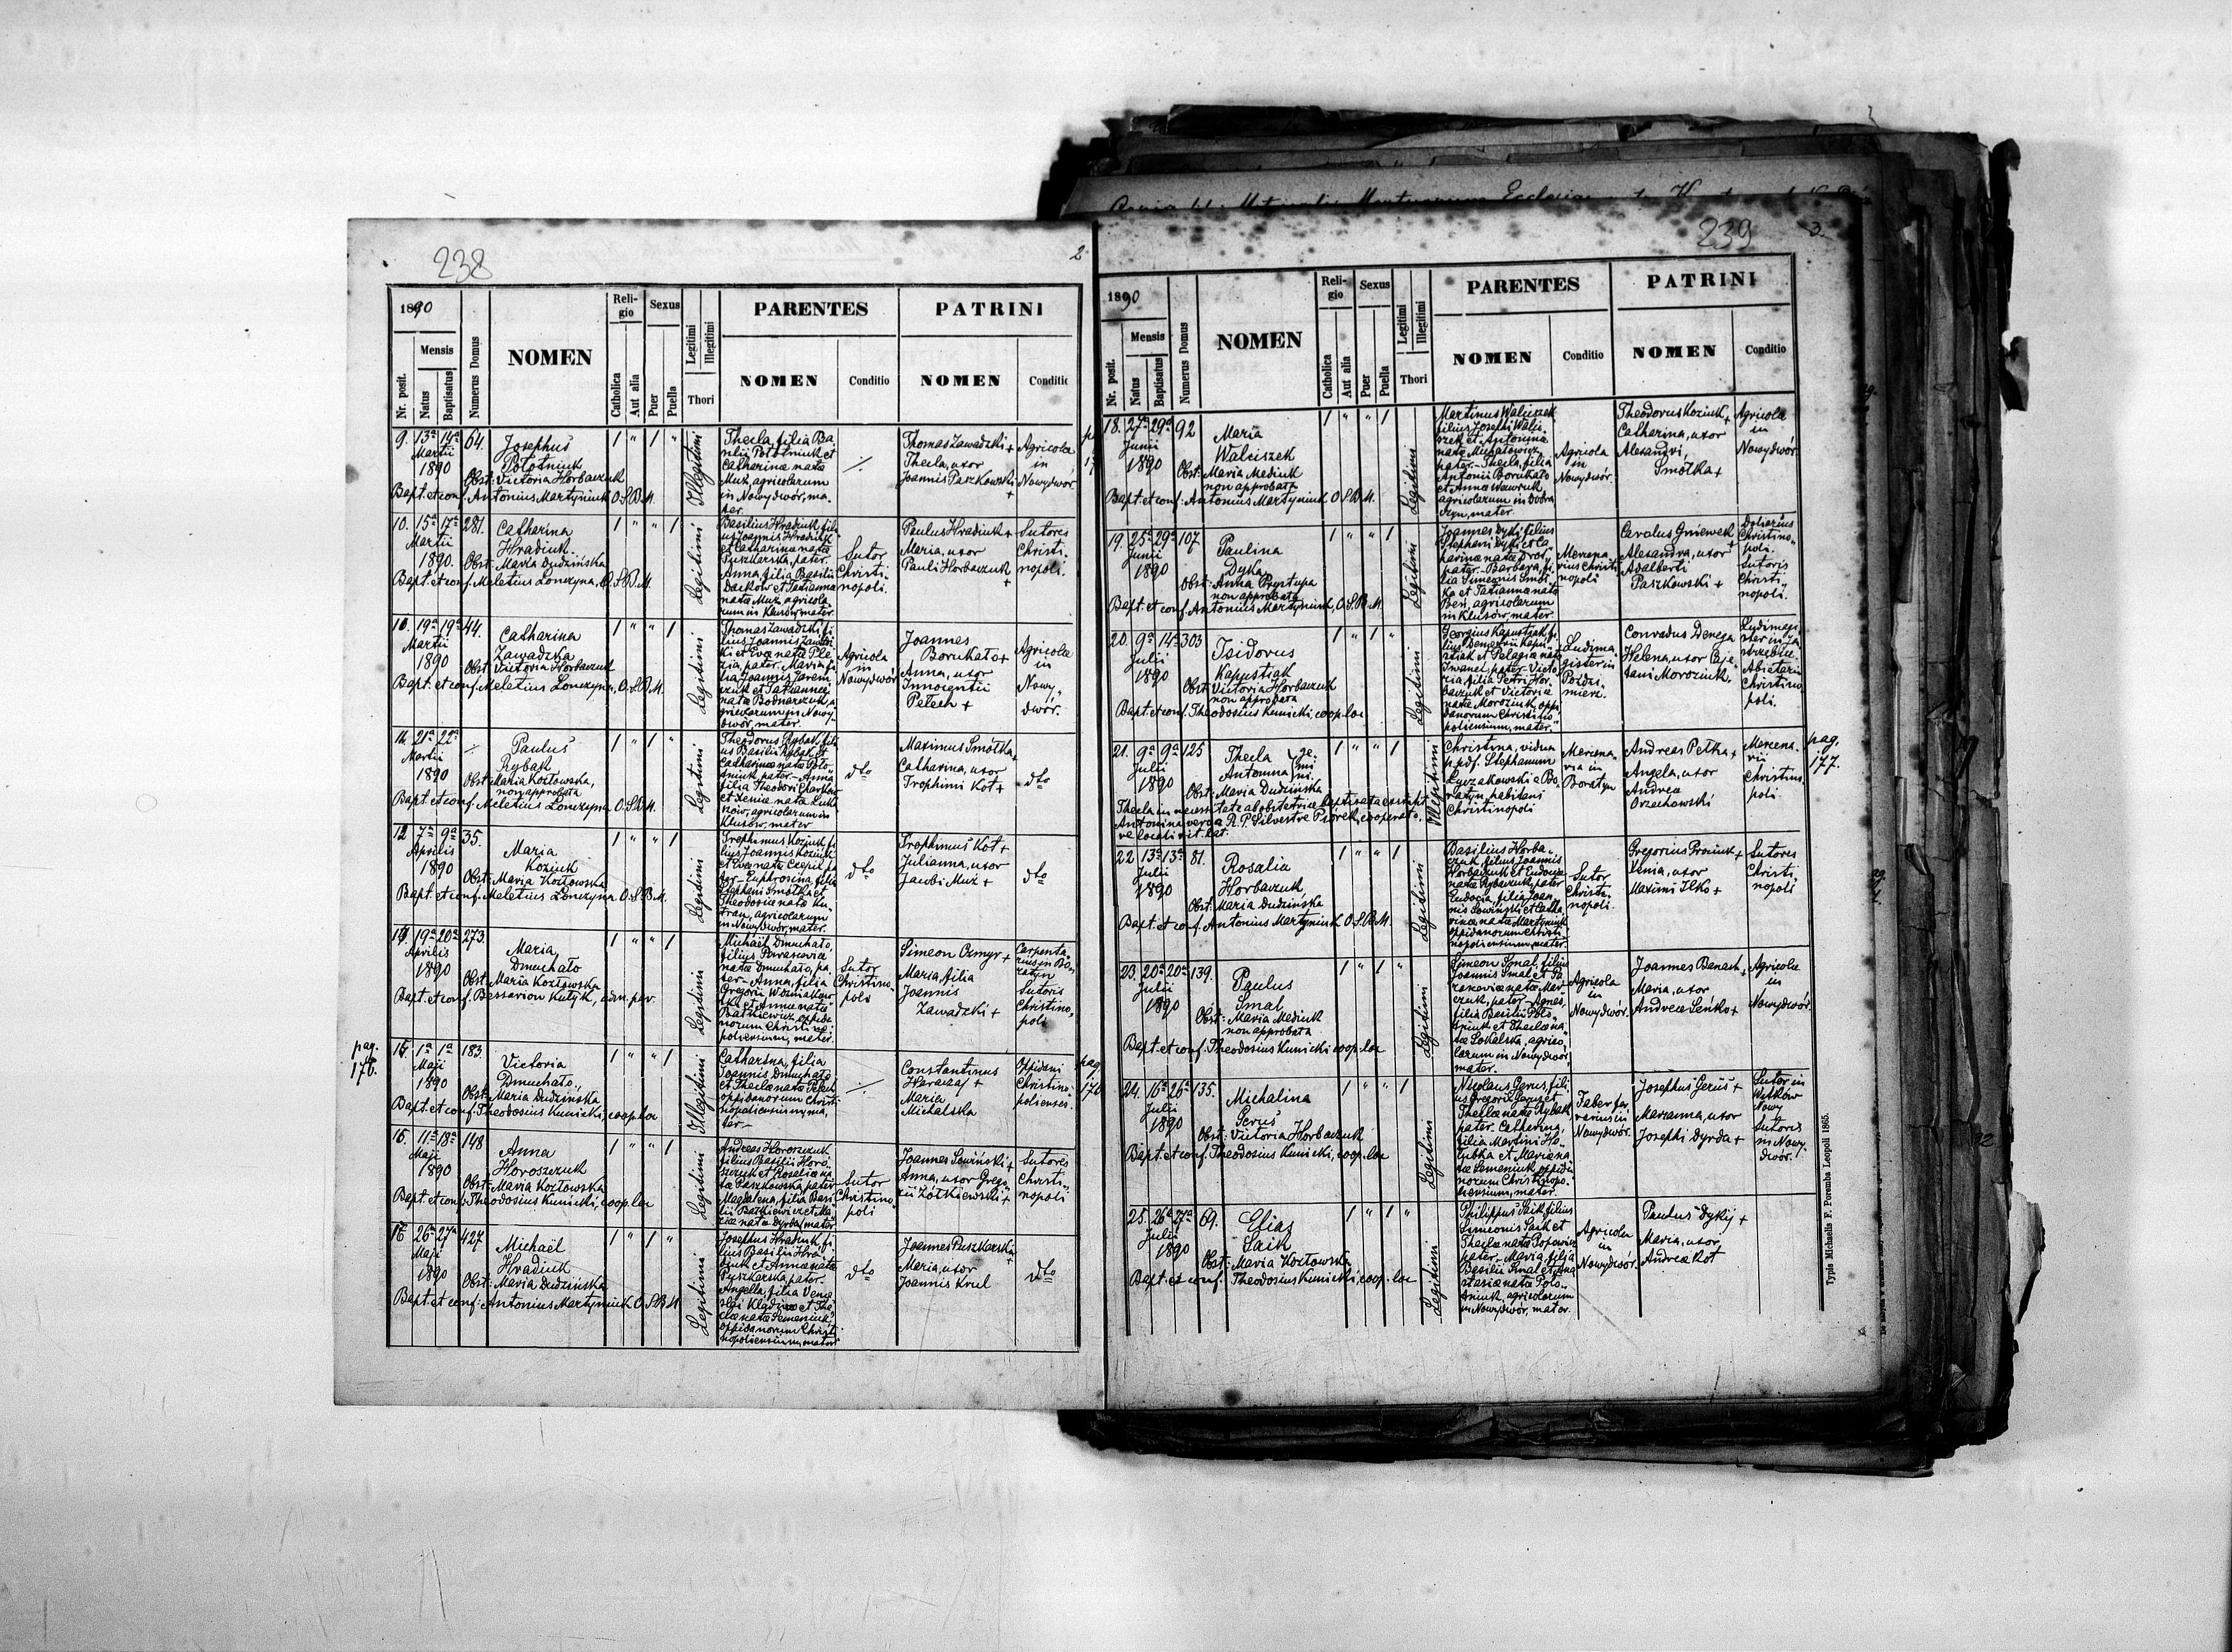 238
2
1890
Nr. posit.
Mensis
Natus
Baptisatus
Numerus Domus
NOMEN
Religio
Catholica
Aut alia
Sexus
Puer
Puella
Legitimi
Illegitimi
Thori
PARENTES
NOMEN
Conditio
PATRINI
NOMEN
Conditio
9. 13a 14a 64.
Martii
1890
Josephus
Połotniuk
Obst: Victoria Horbaczuk
Bapt. et conf. Antonius Martyniuk O.S.B.M.
Illegitimi
Thecla, filia Ba-
silii Połotniuk et
Catharina nata
Muz, agricolarum
in Nowydwór, ma-
ter.
Thomas Zawadzki +
Thecla, uxor
Joannis Paszkowski
+
Agricola
in
Nowydwór
10. 15a 17a 281.
Martii
1890.
Catharina
Hradiuk
Obst: Maria Dudzińska
Bapt. et conf. Meletius Lonczyna, O.S.B.M.
Legitimi
Basilius Hradiuk, fili-
us Joannis Hradiuk
et Catharina nata
Puszkarska, pater.
Anna, filia Basilii
Daćków et Tatianna
nata Muz, agricola-
rum in Klusów, mater.
Sutor
Christi-
nopoli.
Paulus Hradiuk +
Maria, uxor
Pauli Horbaczuk
+
Sutores
Christi-
nopoli.
10. 19a 19a 44.
Martii
1890
Catharina
Zawadzka
Obst: Victoria Horbaczuk
Bapt. et conf. Meletius Lonczyna, O.S.B.M.
Legitimi
Thomas Zawadzki, fi-
lius Joannis Zawadz-
ki et Eva nata Ple-
zia, pater. Maria fi-
lia Joannis Jarem-
czuk et Tatianna
nata Bodnarczuk, a-
gricolarum in Nowy-
dwór, mater.
Agricola
in
Nowydwór
Joannes
Boruhało +
Anna, uxor
Innocentii
Pełech +
Agricola
in
Nowy-
dwór.
11. 21a 22a
Martii
1890
Paulus
Rybak
Obst: Maria Kozłowska,
non approbata
Bapt. et conf. Meletius Lonczyna O.S.B.M.
Legitimi
Theodorus Rybak, fili-
us Basilii Rybak et
Catharina nata Poło-
tniuk, pater. Anna
filia Theodori Charków
et Xenia nata Łuka-
ków, agricolarum in
Klusów, mater
dto
Maximus Smółka +
Catharina, uxor
Trophimi Kot +
dto
12. 7a 9a 35.
Aprilis
1890
Maria
Koziuk
Obst: Maria Kozłowska
Bapt. et conf. Meletius Lonczyna O.S.B.M.
Legitimi
Trophimus Koziuk, fi-
lius Joannis Koziuk
et Eva nata Czepil, pa-
ter - Euphrosina, filia
Stephani Smółka et
Theodosia nata Ku-
tran, agricolarum
in Nowydwór, mater.
dto
Trophimus Kot +
Julianna, uxor
Jacobi Muz +
dto
19a 20a 273.
Aprilis
1890
Maria
Dmuchało
Obst: Maria Kozłowska
Bapt. et conf. Bessarion Kutyk, adm. par.
Legitimi
Michaël Dmuchało,
filius Parascevia
nata Dmuchało, pa-
ter - Anna, filia
Gregorii Woźniakow-
ski et Anna nata
Batkiewicz, oppida-
norum Christino-
poliensium, mater.
Sutor
Christino-
poli
Simeon Ozmyr +
Maria, filia
Joannis
Zawadzki +
Carpenta-
rius in Bo-
ratyn
Sutoris
Christino-
poli
pag.
176.
1a 1a 183.
Maji
1890
Victoria
Dmuchało,
Obst: Maria Dudzińska
Bapt. et conf. Theodosius Kunicki, coop. loc
Illegitimi
Catharina, filia
Joannis Dmuchało
et Thecla nata Pełech
oppidanorum Christi-
nopoliensium, ma-
ter.-
Constantinus
Haraczaj +
Maria
Michalska
Oppidani
Christino-
polienses.
pag.
176
15. 11a 18a 148
Maji
1890
Anna
Horoszczuk
Obst: Maria Kozłowska
Bapt. et conf. Theodosius Kunicki, coop. loc
Legitimi
Andreas Horoszczuk
filius Basilii Horo-
szczuk et Rosalia na-
ta Paszkowska, pater
Magdalena, filia Basi-
lii Batkiewicz et Ma-
ria nata Dyrda, mater
Sutor
Christino-
poli
Joannes Sawiński +
Anna, uxor Grego-
rii Żółkiewski +
Sutores
Christi-
nopoli
16. 26a 27a 427
Maji
1890
Michaël
Hradiuk
Obst: Maria Dudzińska
Bapt. et conf: Antonius Martyniuk O.S.B.M
Legitimi
Josephus Hradiuk, fi-
lius Basilii Hra-
diuk et Anna nata
Puszkarska, pater.
Angella, filia Vence-
slai et The-
cla nata Semeniuk,
oppidanorum Christi-
nopoliensium, mater.
dto
Joannes Puszkarski
+
Maria, uxor
Joannis Krul
dto
239
3.
1890
Nr. posit.
Mensis
Natus
Baptisatus
Numerus Domus
NOMEN
Religio
Catholica
Aut alia
Sexus
Puer
Puella
Legitimi
Illegitimi
Thori
PARENTES
NOMEN
Conditio
PATRINI
NOMEN
Conditio
18. 27a 29a 92
Junii
1890
Maria
Walciszek
Obst: Maria Mediuk
non approbata
Bapt. et conf: Antonius Martyniuk O.S.B.M.
Legitimi
Martinus Walciszek
filius Josephi Walci-
szek et Antonina
nata Michałowicz,
pater. - Thecla, filia
Antonii Boruhało
et Anna Wawruk,
agricolarum in Dobra-
czyn, mater.
Agricola
in
Nowydwór.
Theodorus Koziuk +
Catharina, uxor
Alexandri
Smółka +
Agricola
in
Nowydwór
19. 25a 29a 107.
Junii
1890
Paulina
Dyka
Obst: Anna Prystupa
non approbata
Bapt. et conf. Antonius Martyniuk, O.S.B.M.
Legitimi
Joannes Dyki, filius
Stephani Dyki et Ca-
tharina nata
pater. - Barbara, fi-
lia Simeonis Smół-
ka et Tatianna nata
Beń, agricolarum
in Klusów, mater.
Mercena-
rius Christi-
nopoli
Carolus Gniewek +
Alexandra, uxor
Adalberti
Paszkowski +
Doliarius
Christino-
poli.
Sutoris
Christi-
nopoli.
20. 9a 14a 303
Julii
1890
Isidorus
Kapustiak
Obst: Victoria Horbaczuk
non approbata
Bapt. et conf. Theodosius Kunicki, coop. loc
Legitimi
Georgius Kapustiak, fi-
lius Demetrii Kapu-
stiak et Pelagia nata
Iwanel, pater - Victo-
ria, filia Petri Hor-
baczuk et Victoria
nata Moroziuk, oppi-
danorum Christino-
poliensium, mater.
Ludima-
gister in
Pozdzi-
mierz.
Conradus Denega
Helena, uxor Caje-
tani Moroziuk
Ludimagi-
ster in Ja-
strzębica.
Abietarii
Christino-
poli.
21. 9a 9a 125
Julii
1890
Thecla
Antonina
ge-
mi-
ni.
Obst: Maria Dudzińska
Thecla in necessitate ab obstetrice baptisata exstitit
Antonina vero a R.P. Silvestre Psiorek, cooperato-
re loci rit. lat.
Illegitimi
Christina, vidua
p. def. Stephanum
Łyczakowski e Bo-
ratyn, habitans
Christinopoli
Mercena-
ria in
Boratyn
Andreas Petka +
Angela, uxor
Andrea
Orzechowski
Mercena-
rii
Christino-
poli
pag.
177.
22 13a 13a 81.
Julii
1890
Rosalia
Horbaczuk
Obst: Maria Dudzińska
Bapt. et conf. Antonius Martyniuk O.S.B.M.
Legitimi
Basilius Horba-
czuk, filius Joannis
Horbaczuk et Eudocia
nata Rybaczuk, pater
Eudocia, filia Joan-
nis Sowiński et Catha-
rina nata Martyniuk
oppidanorum Christi-
nopoliensium, mater.
Sutor
Christi-
nopoli.
Gregorius Prociuk +
Xenia, uxor
Maximi Ilko +
Sutores
Christi-
nopoli
23. 20a 20a 139.
Julii
1890
Paulus
Smal
Obst: Maria Mediuk
non approbata
Bapt. et conf. Theodosius Kunicki, coop. loc
Legitimi
Simeon Smal, filius
Joannis Smal et Pa-
rascevia nata Mar-
czuk, pater - Agnes,
filia Basilii Poło-
tniuk et Thecla na-
ta Sokalska, agrico-
larum in Nowydwór,
mater.
Agricola
in
Nowydwór.
Joannes Banach +
Maria, uxor
Andrea Seńko +
Agricola
in
Nowydwór
24. 16a 26a 135.
Julii
1890
Michalina
Geruś
Obst: Victoria Horbaczuk
Bapt. et conf. Theodosius Kunicki, coop. loc
Legitimi
Nicolaus Geruś, fili-
us Gregorii Geruś et
Thecla nata Rybak,
pater. Catharina,
filia Martini Ho-
łubka et Marianna na-
ta Semeniuk, oppida-
norum Christinopo-
liensium, mater.
Faber fer-
rarius in
Nowydwór.
Josephus Geruś +
Marianna, uxor
Josephi Dyrda +
Sutor in
Witków
Nowy
Sutoris
in Nowy-
dwór.
25. 26a 27a 69.
Julii
1890
Elias
Saik
Obst: Maria Kozłowska
Bapt. et conf. Theodosius Kunicki, coop. loc
Legitimi
Philippus Saik, filius
Simeonis Saik et
Thecla nata Popowicz
pater - Maria, filia
Basilii Smal et Ana-
stasia nata Poło-
tniuk, agricolarum
in Nowydwór, mater.
Agricola
in
Nowydwór.
Paulus Dykij +
Maria, uxor
Andrea Kot
Typis Michaelis F. Poremba Leopoli 1865.